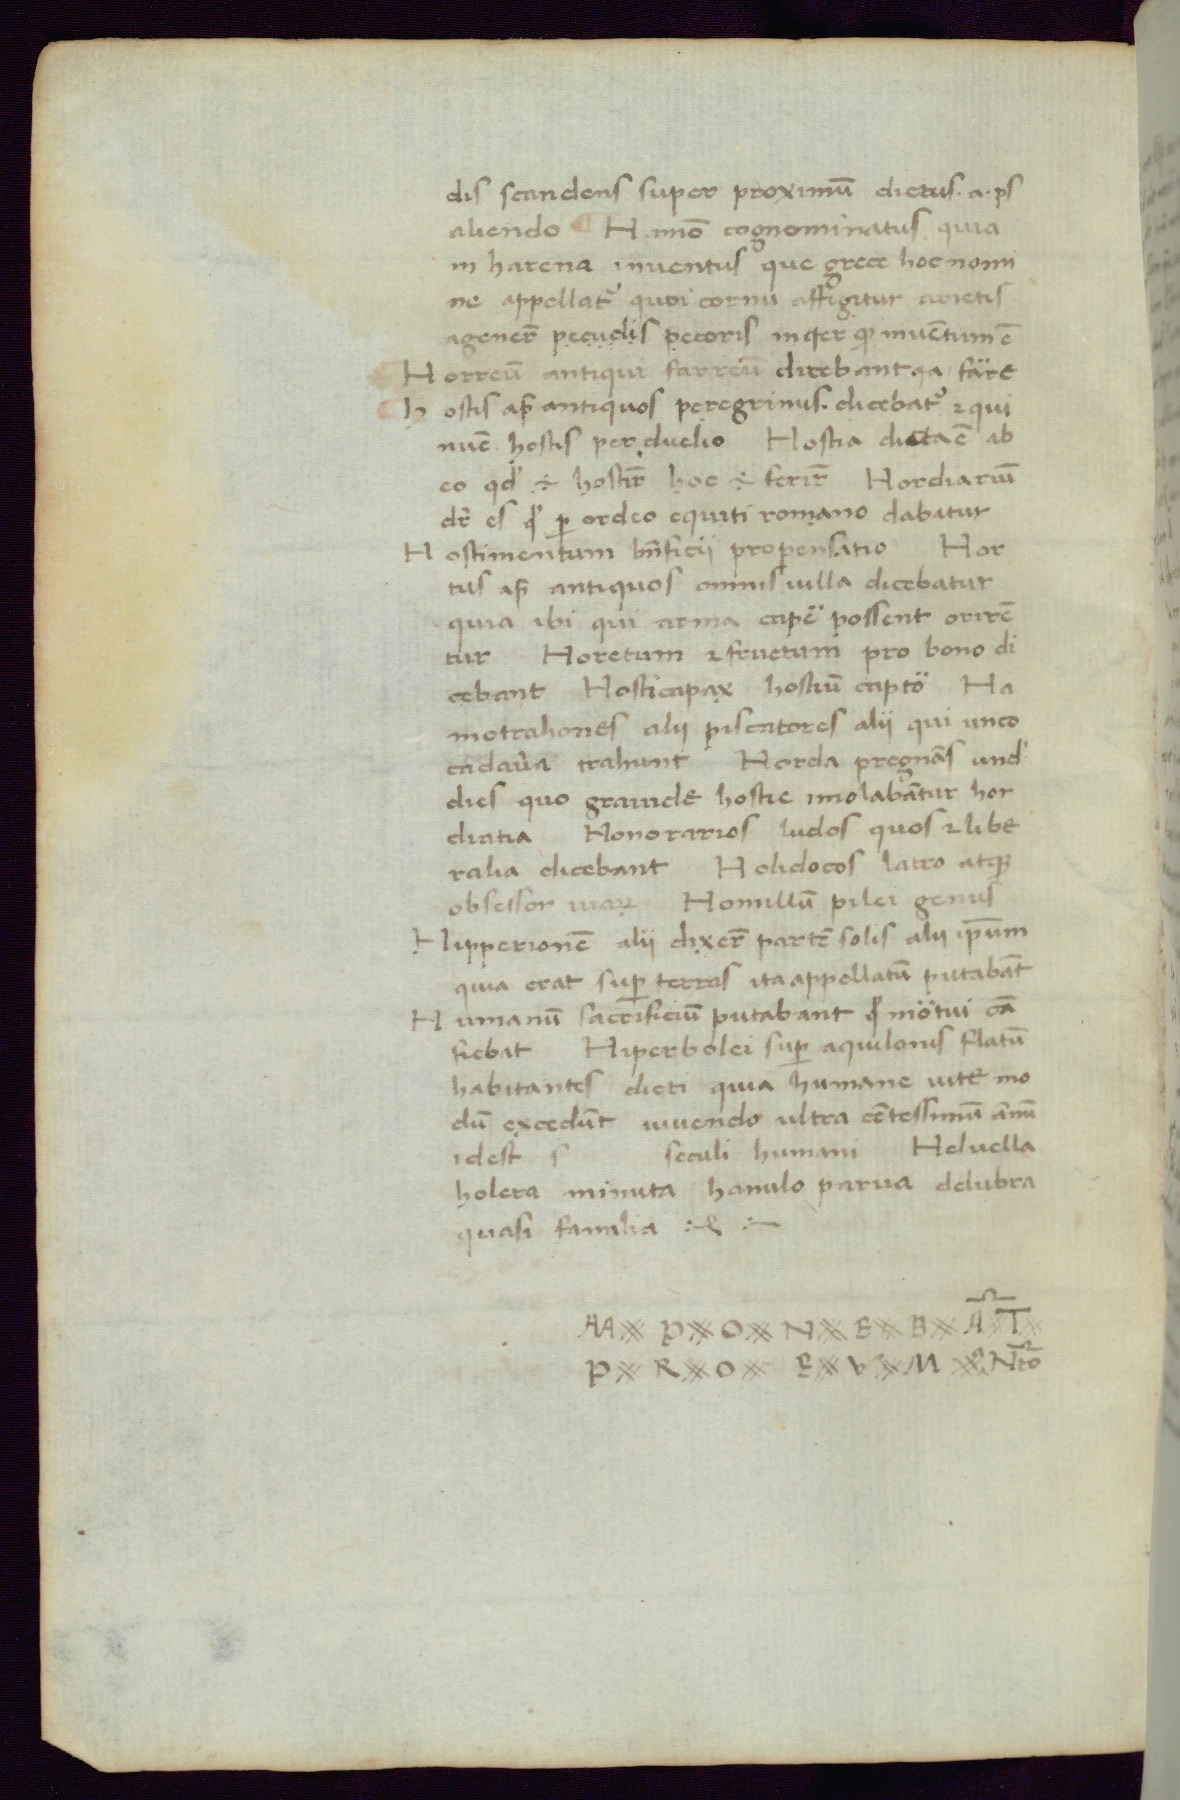 dis scandens super proximū dictus. a. ps
aliendo H amō cognominatus quia
in harena inuentus que grece hoc nomi
ne appellat᷒ quoi cornu affigitur arietis
agener̄ pecudis pecoris inq̄ter quo inuētum ē
Horreū antiqui farreū dicebant qa färe
hostis ap̄ antiquos peregrinus. dicebat᷒ ⁊ qui
nuc̄ hostis per duelio Hostia dicta ē ab
eo qd' ÷ hostir̄ hoc ÷ ferir̄ Hordiariū
dr̄ es qd' p̱ ordeo equiti romano dabatur
Hostimentum bn̄ficii propensatio Hor
tus ap̄ antiquos omnis uilla dicebatur
quia ibi qui arma capë possent orirē
tur Horetum ⁊ fructum pro bono di
cebant Hosticapax hostiū captö Ha
motrahones alii piscatores alii qui unco
cadaūa trahunt Horda pregnās und'
dies quo grauide hostie imolabātur hor
diatia Honorarios ludos quos ⁊ libe
ralia dicebant Holidocos latro atqꝫ
obsessor uiaꝝ Homillū pilei genus
Hipperionē alii dixer̄ partē solis alii ip̄um
quia erat sup̱ terras ita appellatū putabāt
Humanū sacrificiū putabant qd' mötui cā
fiebat Hiperbolei sup̱ aquilonis flatū
habitantes dicti quia humane uite mo
dū excedūt uiuendo ultra cētessimū ānū
idest s seculi humani Heluella
holera minuta hanulo parua delubra
quasi familia
AA P O N E B A T
P R O E V M Nto